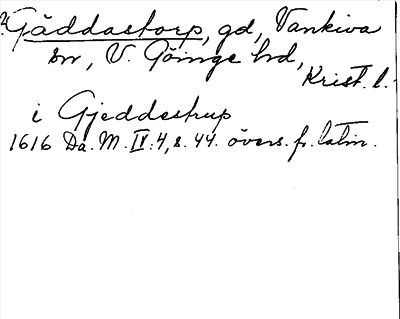 ?Gäddastorp, gd, Vankiva
sn, V. Göinge hd,
Krist. l.
i Gjeddestrup
1616 Da. M. IV:4, s. 44. övers. fr. latin.